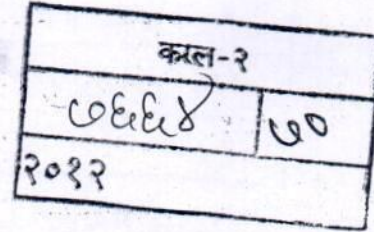 करल-२
७६६४ ७०
२०१२